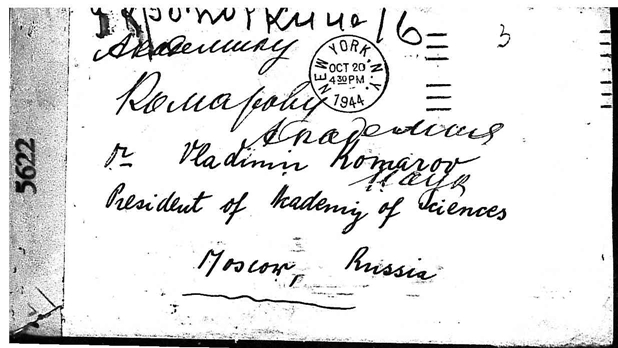 16
3
Академику
NEW YORK, N.Y.
OCT 20
4 30 PM
1944
Комарову
Академия
Dr Vladimir Komarov
Наук
President of Academy of Sciences
Moscow, Russia
5622